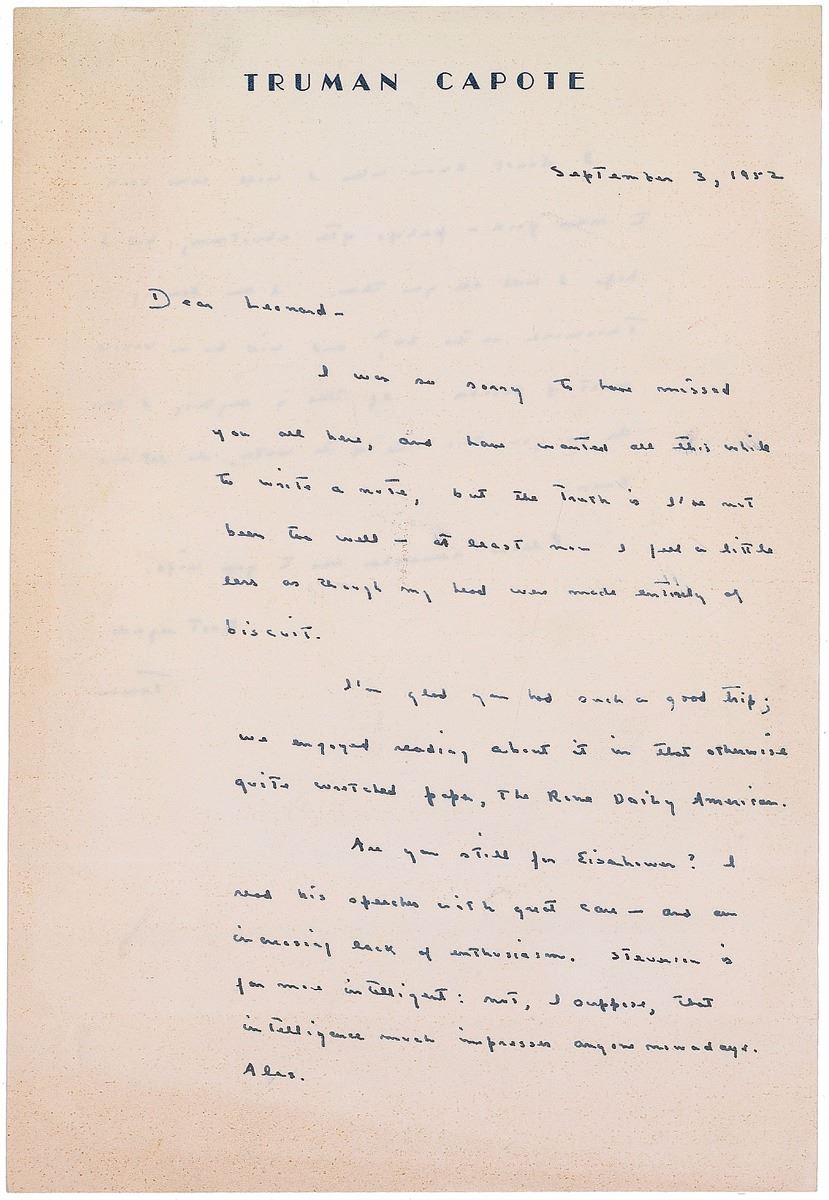 TRUMAN CAPOTE
September 3, 1952
Dear Leonard—
I was so sorry to have missed
you all here, and have wanted all this while
to write a note, but the truth is I've not
been too well — at least now I feel a little
less as though my head were made entirely of
biscuit.
I'm glad you had such a good trip;
we enjoyed reading about it in that otherwise
quite wretched paper, The Rome Daily American.
Are you still for Eisenhower? I
read his speeches with great care — and an
increasing lack of enthusiasm. Stevenson is
far more intelligent: not, I suppose, that
intelligence much impresses anyone nowadays.
Alas.